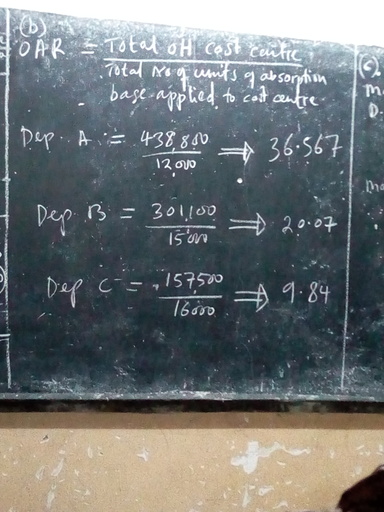 (b)
OAR = Total OH Cost centre
Total No of units of absorption
base applied to cost centre
Dep. A := 438,800 / 12,000 ⇒ 36.567
Dep B = 301,100 / 15000 ⇒ 20.07
Dep C = 157500 / 16000 ⇒ 9.84
(c)